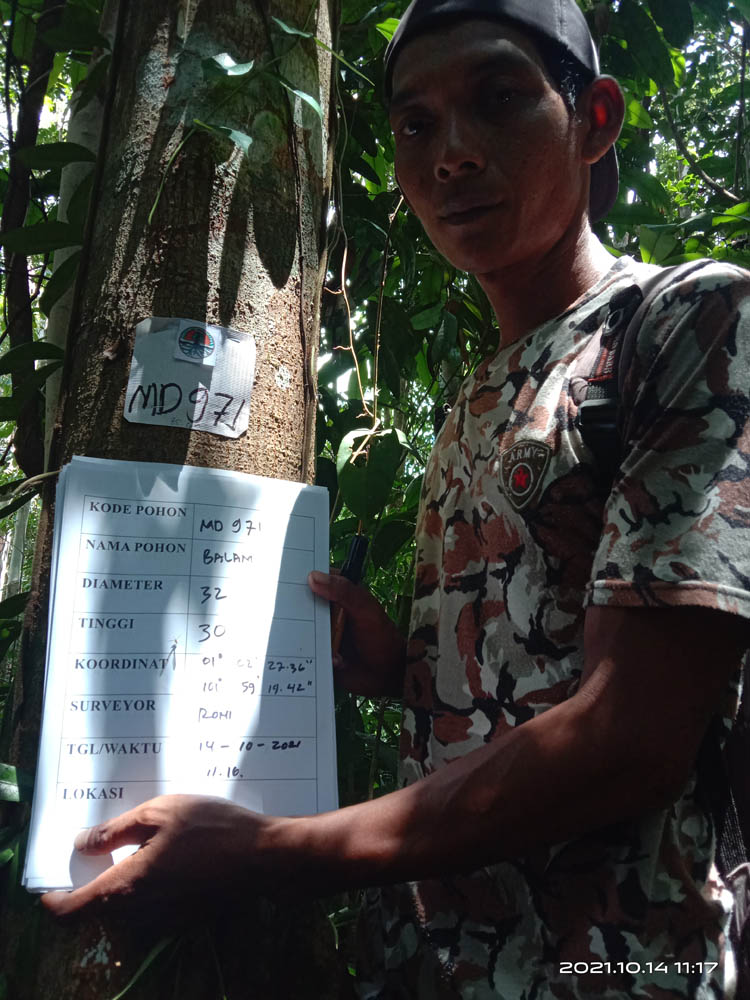 MD 971
KODE POHON MD 971
NAMA POHON BALAM
DIAMETER 32
TINGGI 30
KOORDINAT 01° 02' 27.36"
101° 59' 19.42"
SURVEYOR ROMI
TGL/WAKTU 14-10-2021
11.16.
LOKASI
ARMY
2021.10.14 11:17